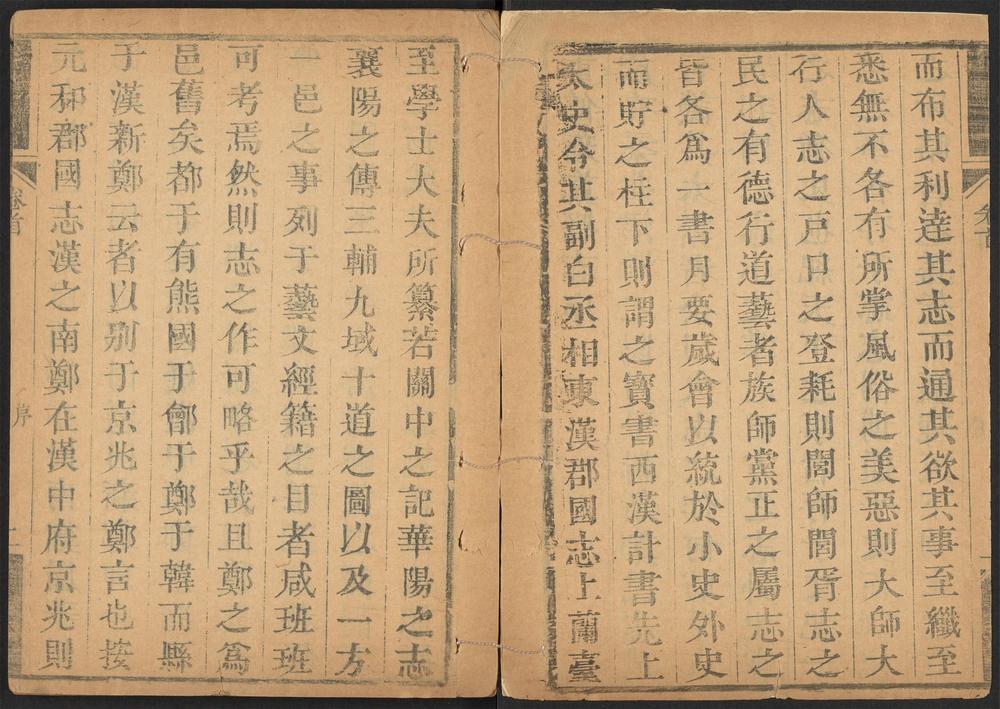 而布其利逹其志而通其欲其事至纖至
悉無不各有所掌風俗之美惡則大師大
行人志之戸口之登耗則閭師閭胥志之
民之有德行道藝者族師黨正之屬志之
皆各爲一書月要歲會以統於小史外史
而貯之柱下則謂之寶書西漢計書先上
太史令其副白丞相東漢郡國志上蘭臺
至學士大夫所纂若關中之記華陽之志
襄陽之傳三輔九域十道之圖以及一方
一邑之事列于藝文經籍之目者咸班班
可考焉然則志之作可略乎哉且鄭之爲
邑舊矣都于有熊國于鄶于鄭于韓而縣
于漢新鄭云者以别于京兆之鄭言也按
元和郡國志漢之南鄭在漢中府京兆則
卷首
序
二